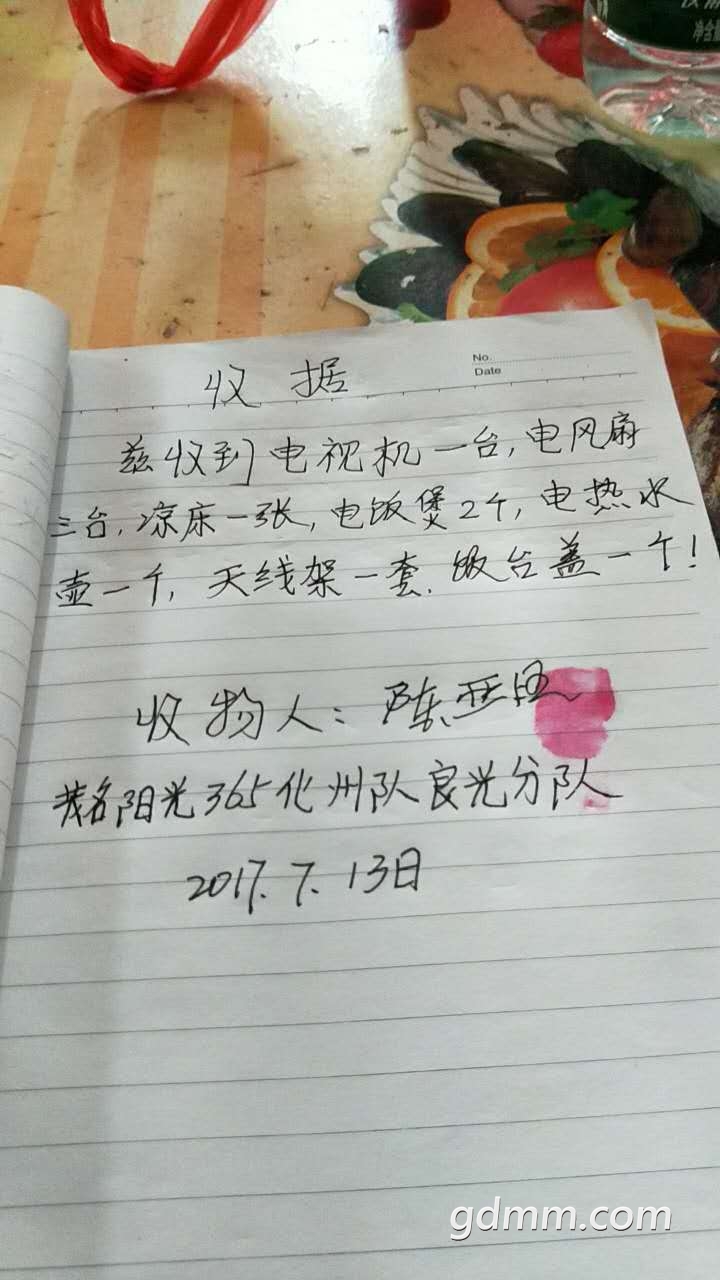 净含
No.
Date
收据
兹收到电视机一台,电风扇
三台,凉床一张,电饭煲2个,电热水
壶一个,天线架一套.饭台盖一个!
收物人:陈亚
茂名阳光365化州队良光分队
2017.7.13日
gdmm.com